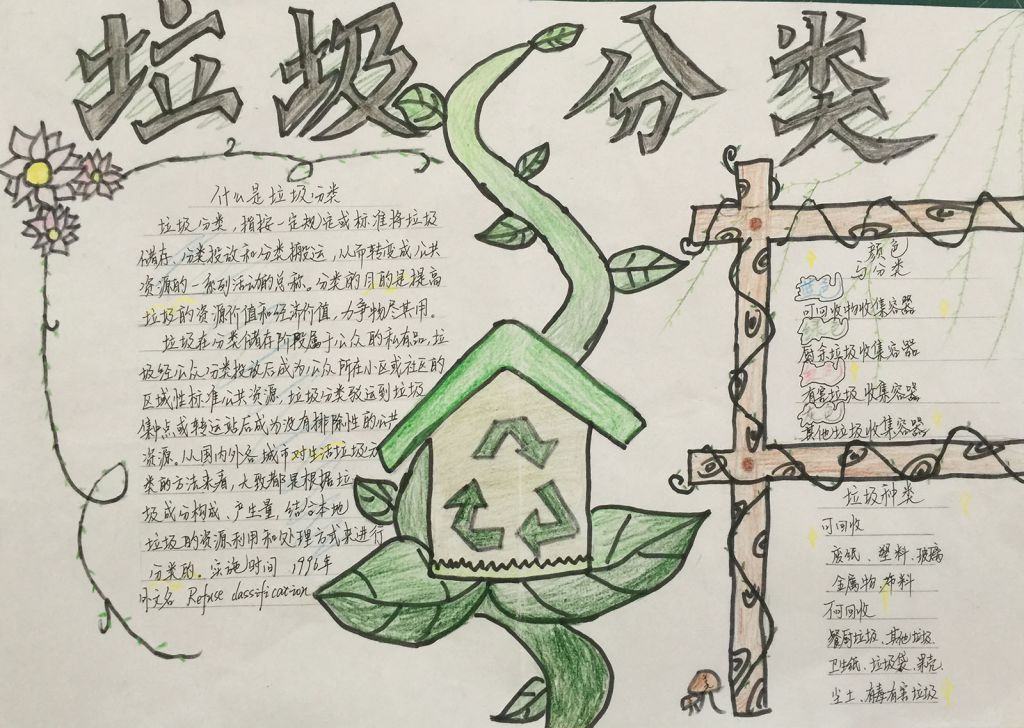 垃圾分类
什么是垃圾分类
垃圾分类，指按一定规定或标准将垃圾
储存、分类投放和分类搬运，从而转变成公共
资源的一系列活动的总称。分类的目的是提高
垃圾的资源价值和经济价值，力争物尽其用。
垃圾在分类储存阶段属于公众的私有品，垃
圾经公众分类投放后成为公众所在小区或社区的
区域性标准公共资源，垃圾分类驳运到垃圾
集中点或转运站后成为没有排除性的公共
资源。从国内外各城市对生活垃圾分
类的方法来看，大致都是根据垃
圾成分构成、产生量，结合本地
垃圾的资源利用和处理方式来进行
分类的。实施时间 1996年
外文名 Refuse classification
颜色
与分类
蓝色
可回收物收集容器
厨余垃圾收集容器
有害垃圾收集容器
其他垃圾收集容器
垃圾种类
可回收
废纸、塑料、玻璃
金属物、布料
不可回收
餐厨垃圾、其他垃圾
卫生纸、垃圾袋、果壳
尘土、有毒有害垃圾